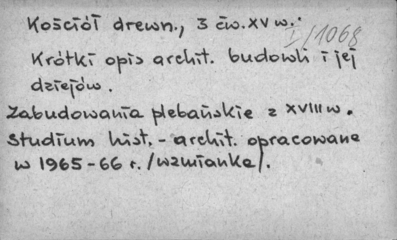 Kościół drewn., 3 ćw. XV w.
I/1068
Krótki opis archit. budowli i jej
dziejów.
Zabudowania plebańskie z XVIII w.
Studium hist.-archit. opracowane
w 1965-66 r. /wzmianka/.